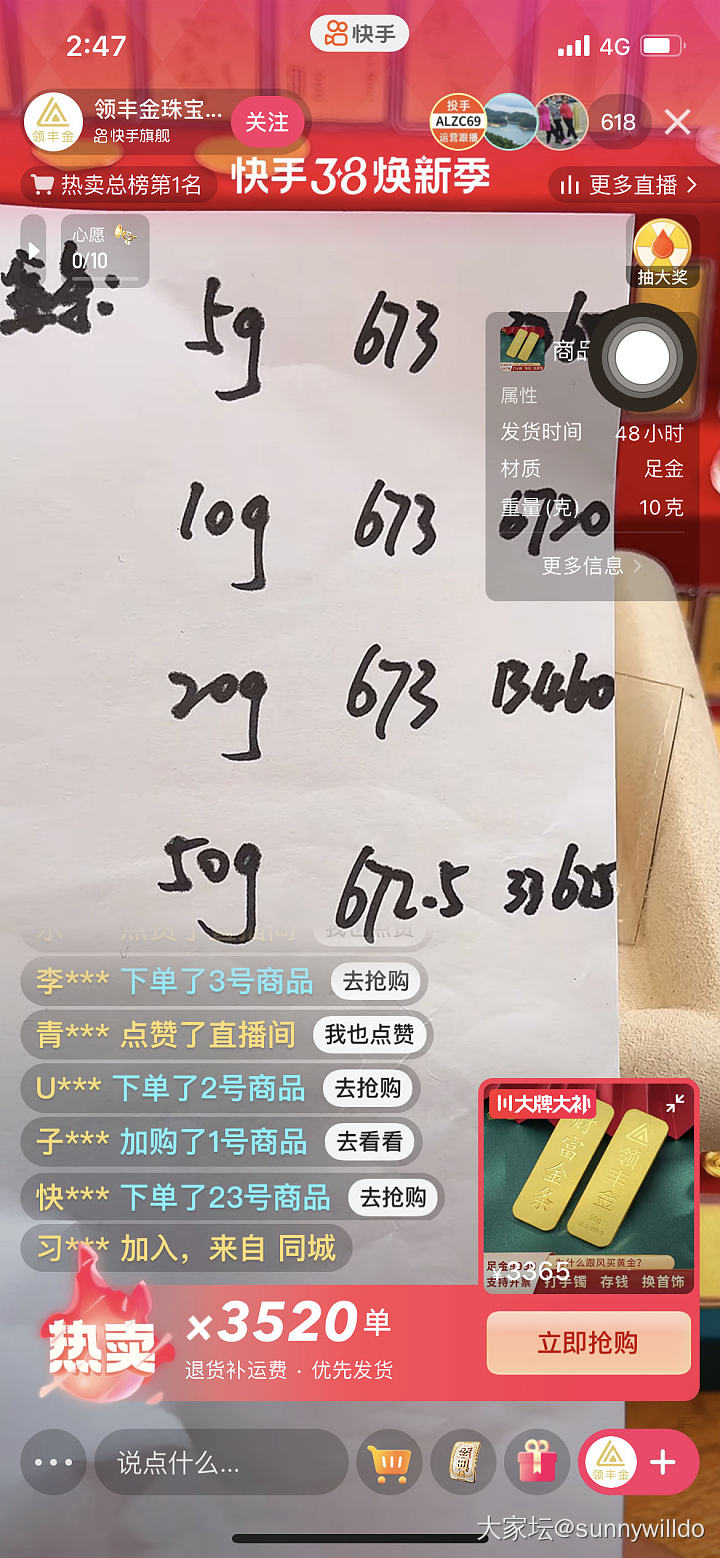 2:47
快手
4G
领丰金珠宝...
快手旗舰
关注
领丰金
投手
ALZC69
运营跟播
618
热卖总榜第1名
快手38焕新季
更多直播
心愿
0/10
抽大奖
5g 673 3365
商品
属性
发货时间 48小时
材质 足金
重量(克) 10克
更多信息
10g 673 6730
20g 673 13460
50g 672.5 33625
我也点赞
李*** 下单了3号商品 去抢购
青*** 点赞了直播间 我也点赞
U*** 下单了2号商品 去抢购
子*** 加购了1号商品 去看看
快*** 下单了23号商品 去抢购
习*** 加入，来自 同城
大牌大补
财富金条
领丰金
50g
足金9999
为什么跟风买黄金?
¥3365
支持开票 打手镯 存钱 换首饰
热卖
×3520单
退货补运费 · 优先发货
立即抢购
说点什么...
领丰金
大家坛@sunnywilldo